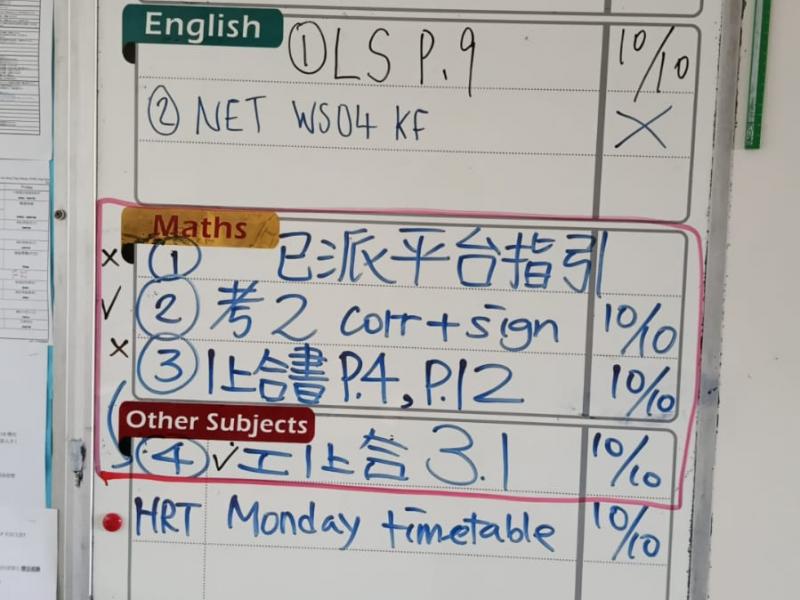 English
① LS P.9 10/10
② NET WS04 KF ×
Maths
× ① 已派平台指引
✓ ② 考2 corr+sign 10/10
× ③ 1上合書P.4, P.12 10/10
Other Subjects
④ ✓工1上合 3.1 10/10
HRT Monday timetable 10/10